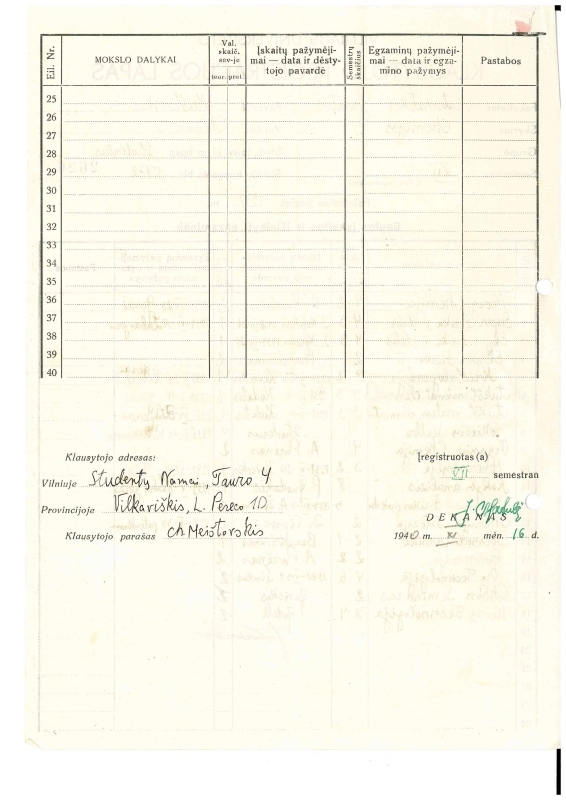 Eil. Nr.
MOKSLO DALYKAI
Val. skaič. sav-je
teor. prat.
Įskaitų pažymėji-
mai — data ir dėsty-
tojo pavardė
Semestrų skaičius
Egzaminų pažymėji-
mai — data ir egza-
mino pažymys
Pastabos
25
26
27
28
29
30
31
32
33
34
35
36
37
38
39
40
Klausytojo adresas:
Vilniuje Studentų Namai, Tauro 4
Provincijoje Vilkaviškis, L. Pereco 10
Klausytojo parašas Ch Meištovskis
Įregistruotas (a)
VII semestran
DEKANAS
1940 m. XI mėn. 16 d.